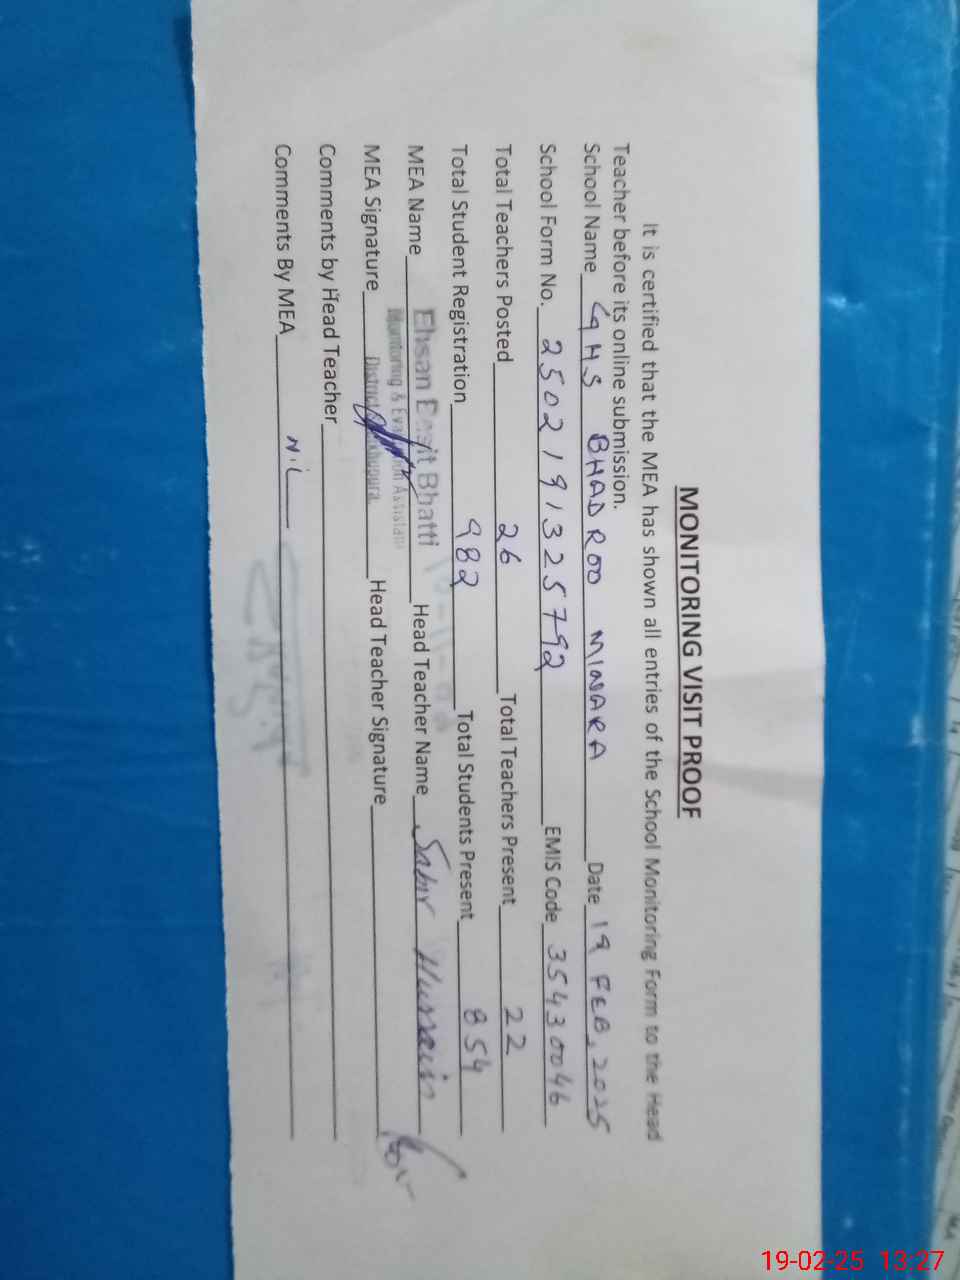 MONITORING VISIT PROOF
It is certified that the MEA has shown all entries of the School Monitoring Form to the Head
Teacher before its online submission.
School Name GHS BHADROO MINARA Date 19 FEB, 2025
School Form No. 2502191325792 EMIS Code 35430046
Total Teachers Posted 26 Total Teachers Present 22
Total Student Registration 982 Total Students Present 854
MEA Name Ehsan Bhatti Head Teacher Name Sabir Hussain
Monitoring & Assistant
MEA Signature District Head Teacher Signature
Comments by Head Teacher
Comments By MEA Nil
19-02-25 13:27